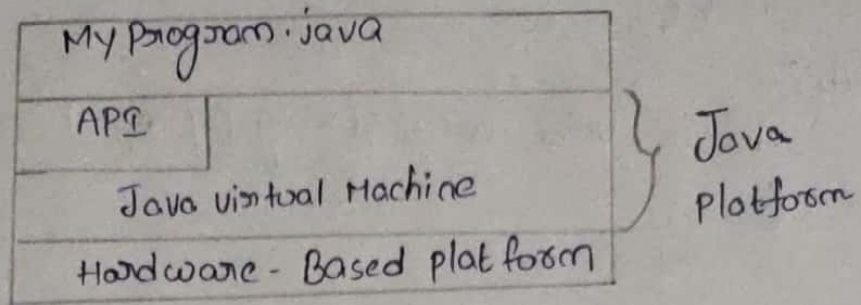 My Program.java
API
Java virtual Machine
Hardware - Based platform
Java
platform